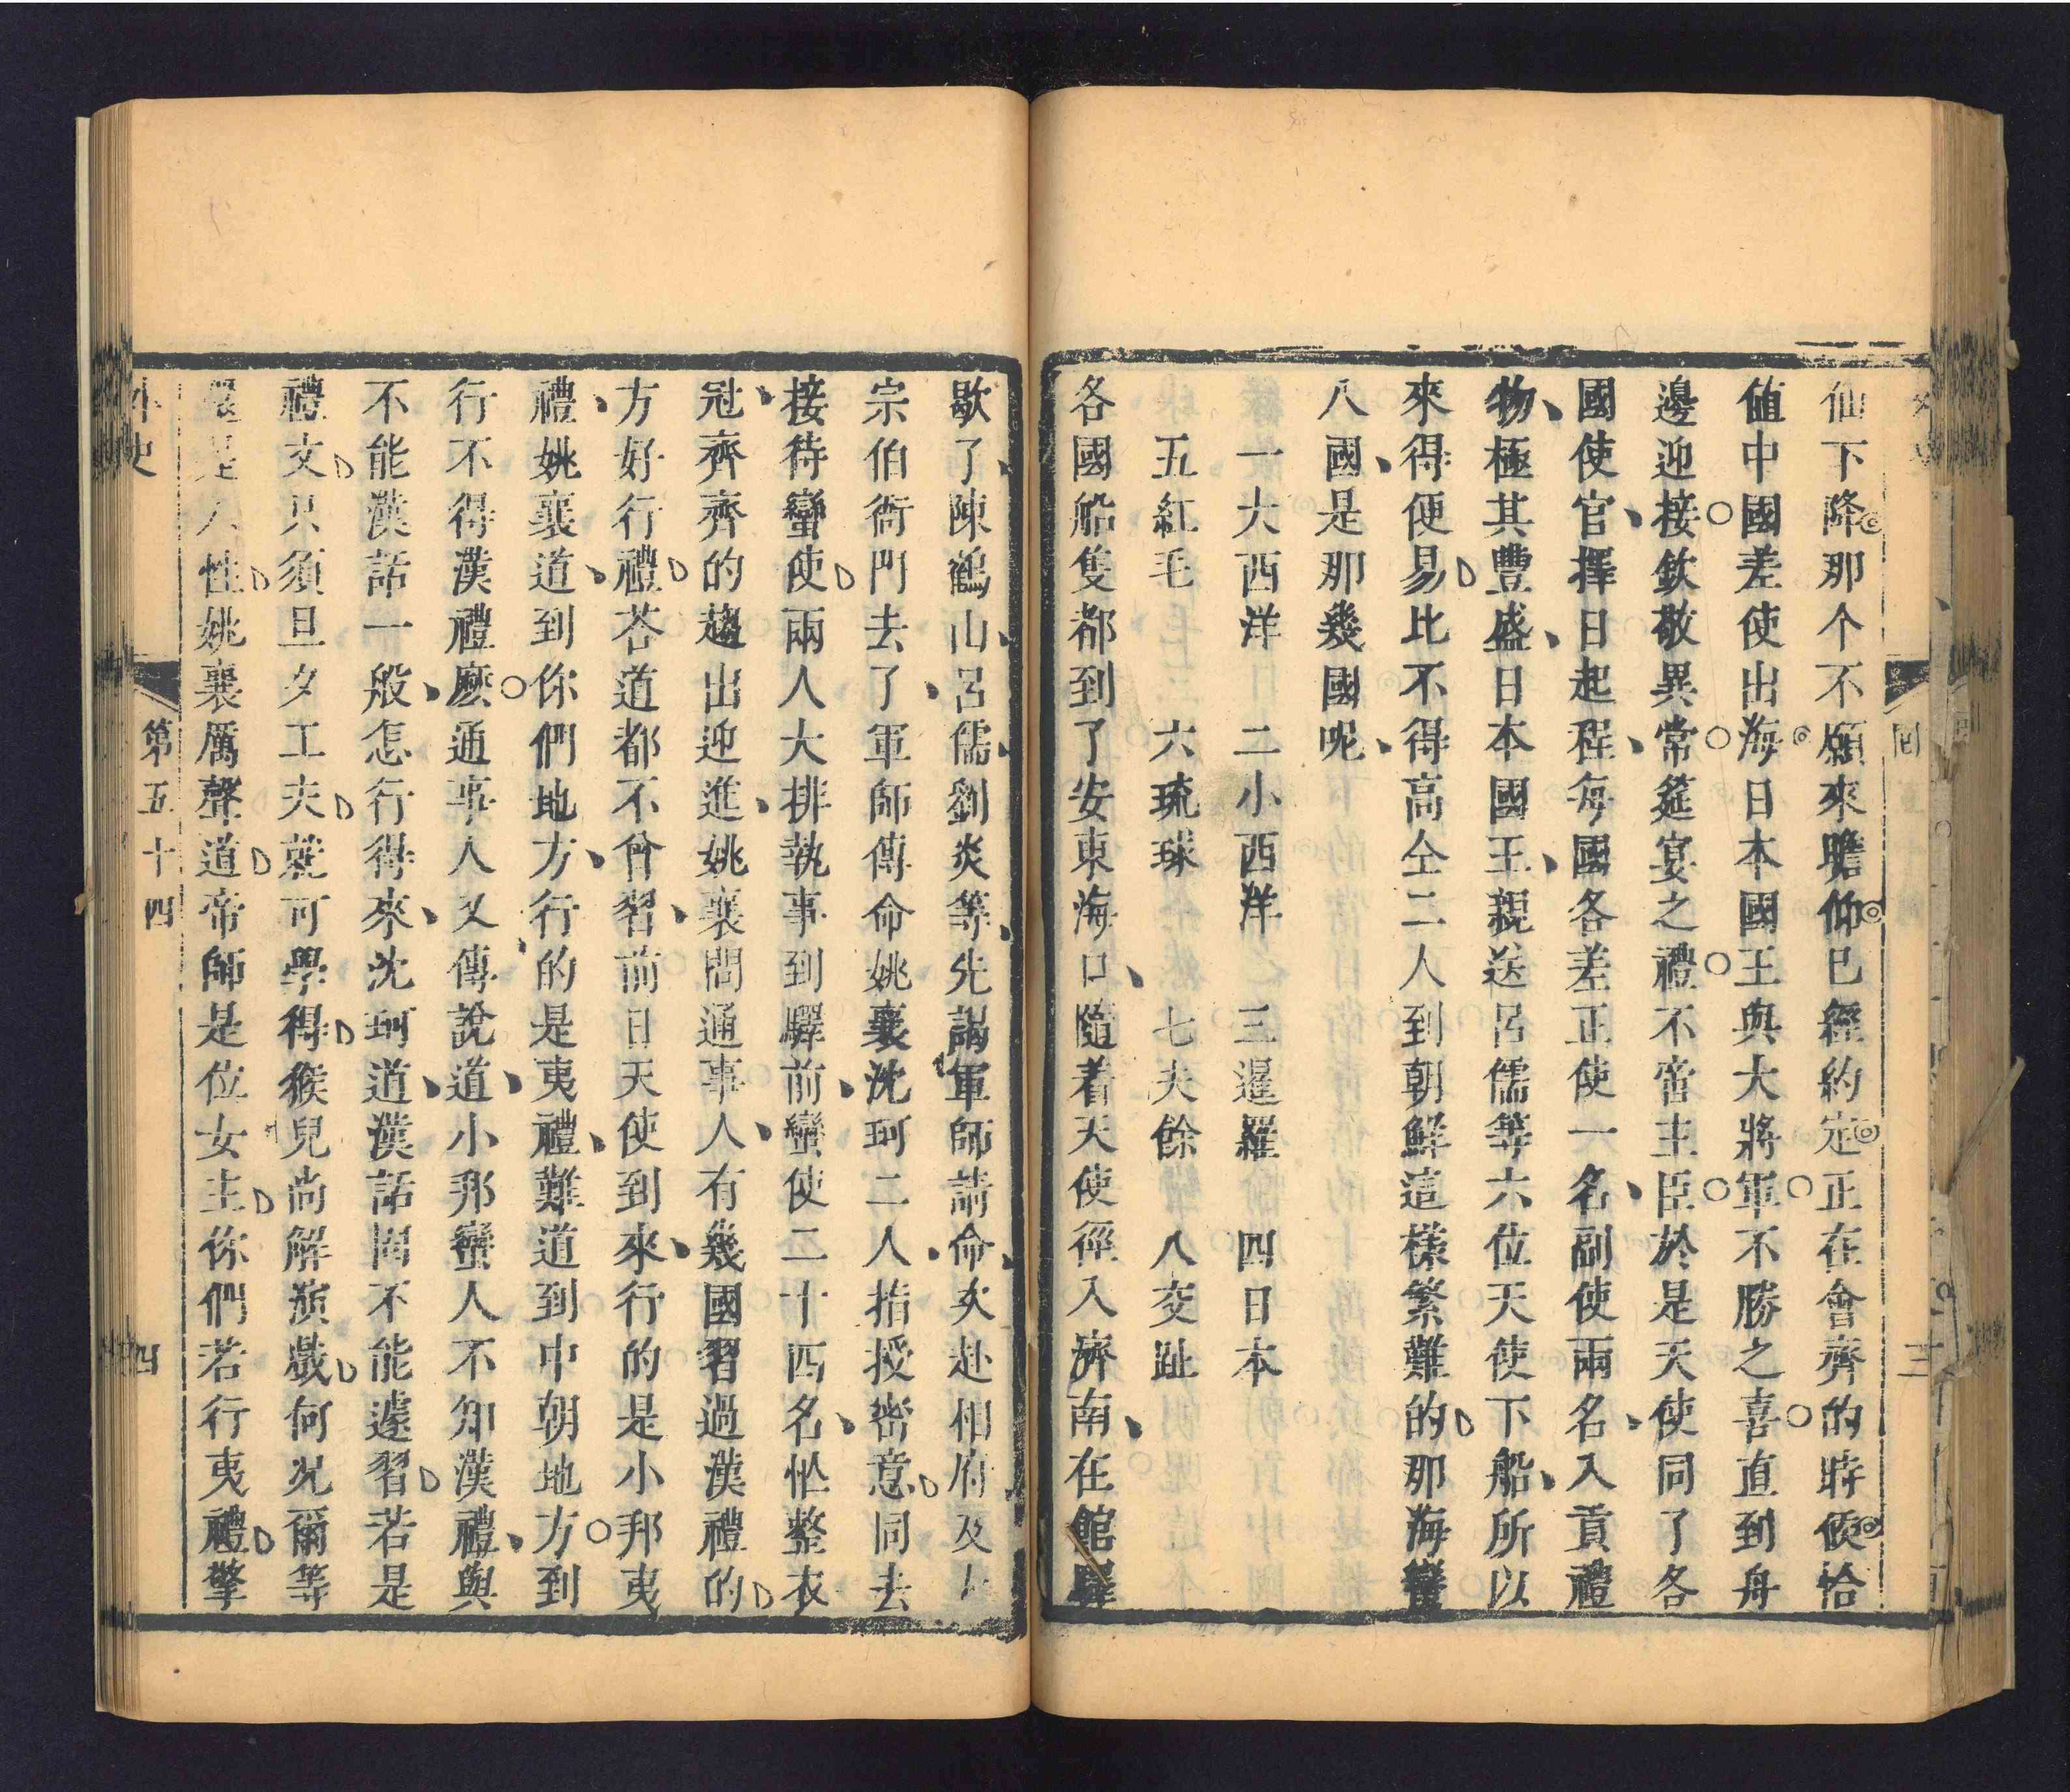 仙下降那个不願來瞻仰已經約定正在會齊的時候恰
値中國差使出海日本國王與大將軍不勝之喜直到舟
邊迎接欽敬異常筵宴之禮不啻主臣於是天使同了各
國使官擇日起程每國各差正使一名副使兩名入貢禮
物極其豐盛日本國王親送呂儒等六位天使下船所以
來得便易比不得高仝二人到朝鮮這樣繁難的那海蠻
八國是那幾國呢
一大西洋　二小西洋　三暹羅　四日本
五紅毛　六琉球　七夫餘　八交趾
各國船隻都到了安東海口隨着天使徑入濟南在館驛
歇了陳鶴山呂儒劉炎等先謁軍師請命次赴相府及大
宗伯衙門去了軍師傳命姚襄沈珂二人指授密意同去
接待蠻使兩人大排執事到驛前蠻使二十四名恾整衣
冠齊齊的趨出迎進姚襄問通事人有幾國習過漢禮的
方好行禮荅道都不曾習前日天使到來行的是小邦夷
禮姚襄道到你們地方行的是夷禮難道到中朝地方到
行不得漢禮麽通事人又傳說道小邦蠻人不知漢禮與
不能漢話一般怎行得來沈珂道漢話固不能遽習若是
禮文只須旦夕工夫就可學得猴兒尚解演戲何况爾等
還是人性姚襄厲聲道帝師是位女主你們若行夷禮擎
外史
第五十四
四
回
三